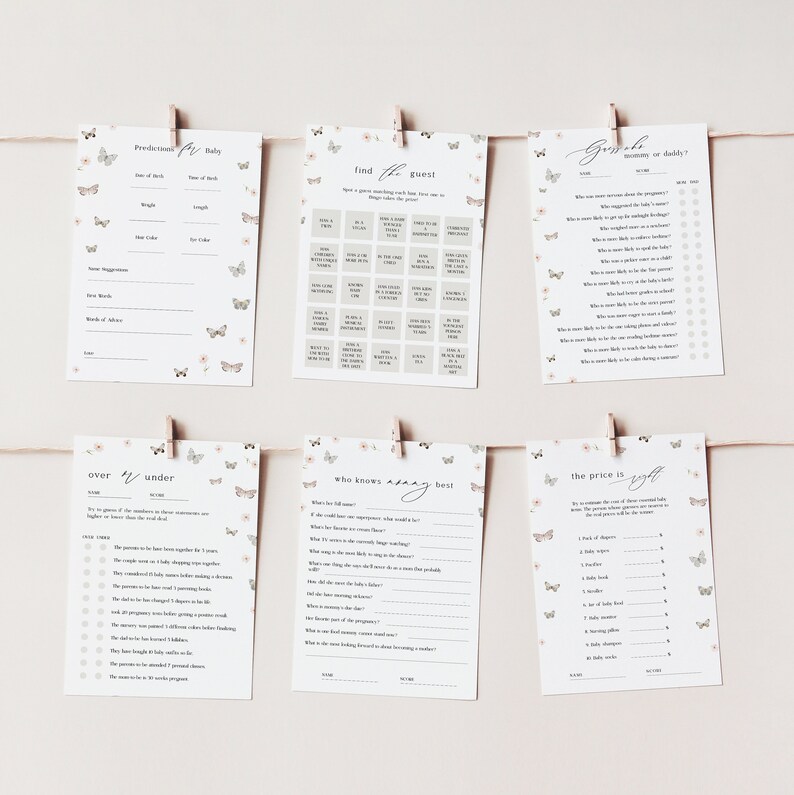 Predictions for Baby
Date of Birth Time of Birth
Weight Length
Hair Color Eye Color
Name Suggestions
First Words
Words of Advice
find the guest
Spot a guest matching each box. First one to
Bingo takes the prize!
HAS A
TWIN
IS A
VEGAN
HAS A BABY
YOUNGER
THAN 1
YEAR
USED TO BE
A
BABYSITTER
CURRENTLY
PREGNANT
HAS
CHILDREN
WITH UNIQUE
NAMES
HAS 2 OR
MORE PETS
IS THE ONLY
CHILD
HAS
RUN A
MARATHON
HAS GIVEN
BIRTH IN
THE LAST 6
MONTHS
HAS GONE
SKYDIVING
KNOWN
BABY
HAS LIVED
IN A FOREIGN
COUNTRY
HAS KIDS
BUT NO
KNOWS 3
LANGUAGES
HAS A
FAMOUS
FAMILY
MEMBER
PLAYS A
MUSICAL
INSTRUMENT
IS LEFT-
HANDED
HAS BEEN
MARRIED 5
YEARS
IS THE
YOUNGEST
PERSON
HERE
WENT TO
WITH
MOM TO BE
HAS A
BIRTHDAY
CLOSE TO
THE BABY'S
DUE DATE
HAS
WRITTEN A
BOOK
LOVES
TEA
HAS A
BLACK BELT
IN A
MARTIAL
ART
Guess who
mommy or daddy?
NAME SCORE
MOM DAD
Who was more nervous about the pregnancy?
Who suggested the baby's name?
Who is more likely to get up for midnight feedings?
Who weighed more as a newborn?
Who is more likely to enforce bedtime?
Who is more likely to spoil the baby?
Who was a pickier eater as a child?
Who is more likely to be the 'fun' parent?
Who is more likely to cry at the baby's birth?
Who had better grades in school?
Who is more likely to be the strict parent?
Who was more eager to start a family?
Who is more likely to be the one taking photos and videos?
Who is more likely to be the one reading bedtime stories?
Who is more likely to teach the baby to dance?
Who is more likely to be calm during a tantrum?
over or under
NAME SCORE
Try to guess if the numbers in these statements are
higher or lower than the real deal.
OVER UNDER
The parents-to-be have been together for 5 years.
The couple went on 4 baby shopping trips together.
They considered 15 baby names before making a decision.
The parents-to-be have read 3 parenting books.
The dad-to-be has changed 5 diapers in his life.
took 20 pregnancy tests before getting a positive result.
The nursery was painted 3 different colors before finalizing.
The dad-to-be has learned 3 lullabies.
They have bought 10 baby outfits so far.
The parents-to-be attended 7 prenatal classes.
The mom-to-be is 30 weeks pregnant.
who knows mommy best
What's her full name?
If she could have one superpower, what would it be?
What's her favorite ice cream flavor?
What TV series is she currently binge-watching?
What song is she most likely to sing in the shower?
What's one thing she says she'll never do as a mom (but probably
will)?
How did she meet the baby's father?
Did she have morning sickness?
When is mommy's due date?
Her favorite part of the pregnancy?
What is one food mommy cannot stand now?
What is she most looking forward to about becoming a mother?
NAME SCORE
the price is right
Try to estimate the cost of these essential baby
items. The person whose guesses are nearest to
the real prices will be the winner.
1. Pack of diapers $
2. Baby wipes $
3. Pacifier $
4. Baby book $
5. Stroller $
6. Jar of baby food $
7. Baby monitor $
8. Nursing pillow $
9. Baby shampoo $
10. Baby socks $
NAME SCORE